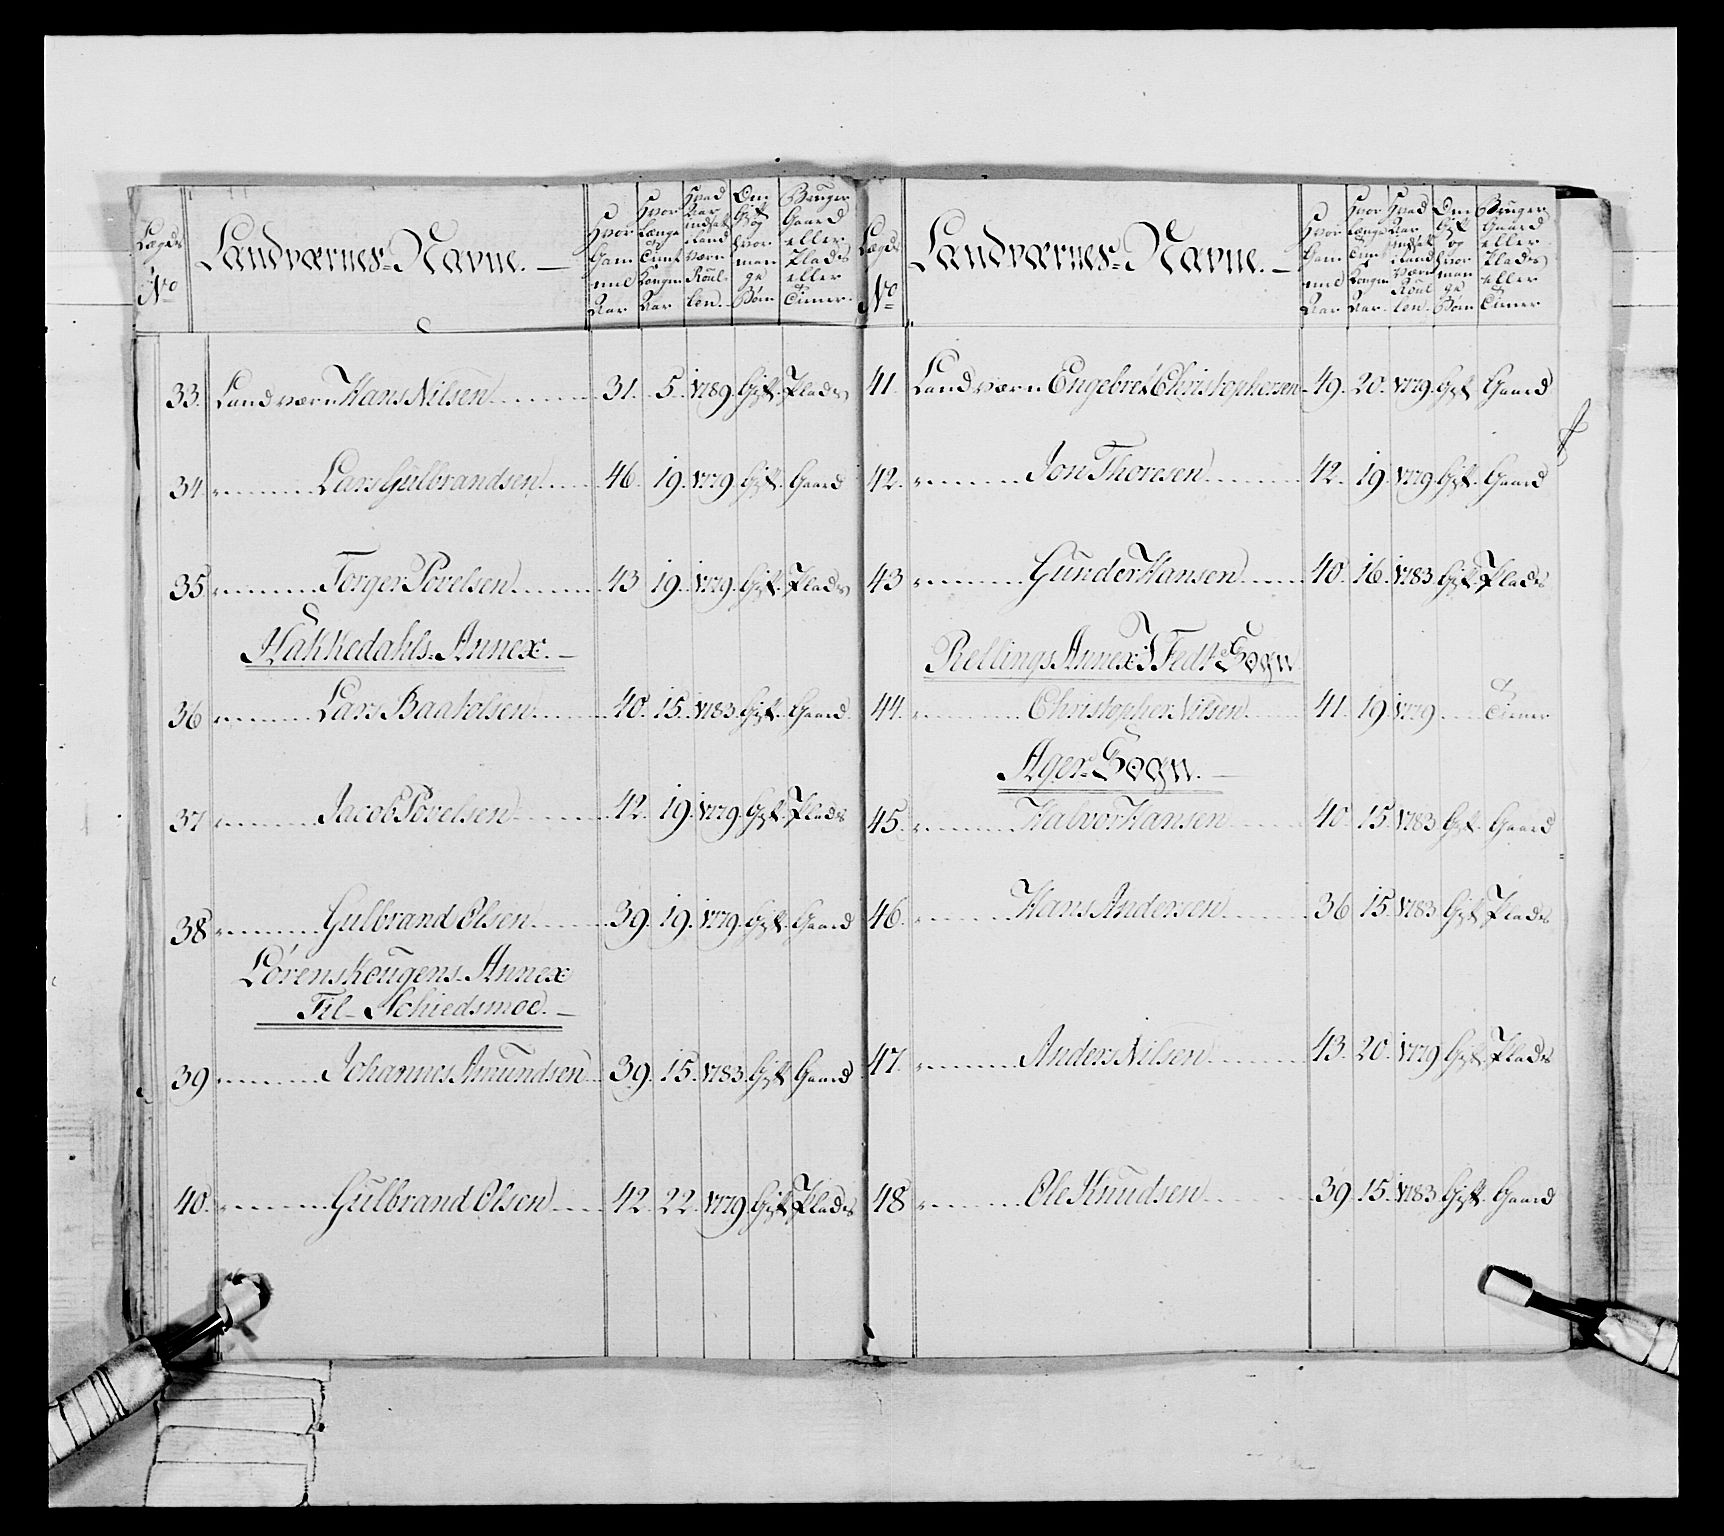 Lægds No
Landværnes-Navne.
Hvor Gam mel Aar
Hvor Længe og Tient Kongen Aar
Hvad Aar indsat i Land værn Roul len.
Om Gift og hvor man ge Børn
Bruger Gaard eller Plads eller Tiener.
33. Landværn Hans Nilsen 31. 5. 1789. Gift. Plads
34 Lars Gulbrandsen 46. 19. 1779. Gift. Gaard
35 Torger Povelsen 43 19. 1779. Gift. Plads
Hakkedahls Annex.
36 Lars Baarolsen 40. 15. 1783. Gift. Gaard
37 Jacob Povelsen 42. 19. 1779. Gift. Plads
38 Gulbrand Olsen 39. 19. 1779. Gift. Gaard
Lørenskougens Annex
Til Schiedsmoe.
39 Johannes Amundsen 39. 15. 1783. Gift Gaard
40. Gulbrand Olsen 42. 22. 1779. Gift Plads
Lægds No
Landværnes-Navne.
Hvor Gam mel Aar
Hvor Længe og Tient Kongen Aar.
Hvad Aar indsat i Land Værn Roul len.
Om Gift og hvor man ge Børn
Bruger Gaard eller Plads eller Tiener
41. Landværn Engebret Christophersen 49. 20. 1779. Gift Gaard
42. Jon Thoresen 42. 19. 1779. Gift. Gaard
43 Gunder Hansen 40. 16. 1783. Gift. Plads
Rellings Annex i Fedt Sogn
44. Christopher Nilsen 41. 19. 1779 Tiener
Ager Sogn.
45. Halvor Hansen 40. 15. 1783 Gift. Gaard
46. Hans Andersen 36 15. 1783 Gift Plads
47. Anders Nilsen 43. 20. 1779 Gift. Plads
48 Ole Knudsen 39. 15. 1783 Gift. Gaard